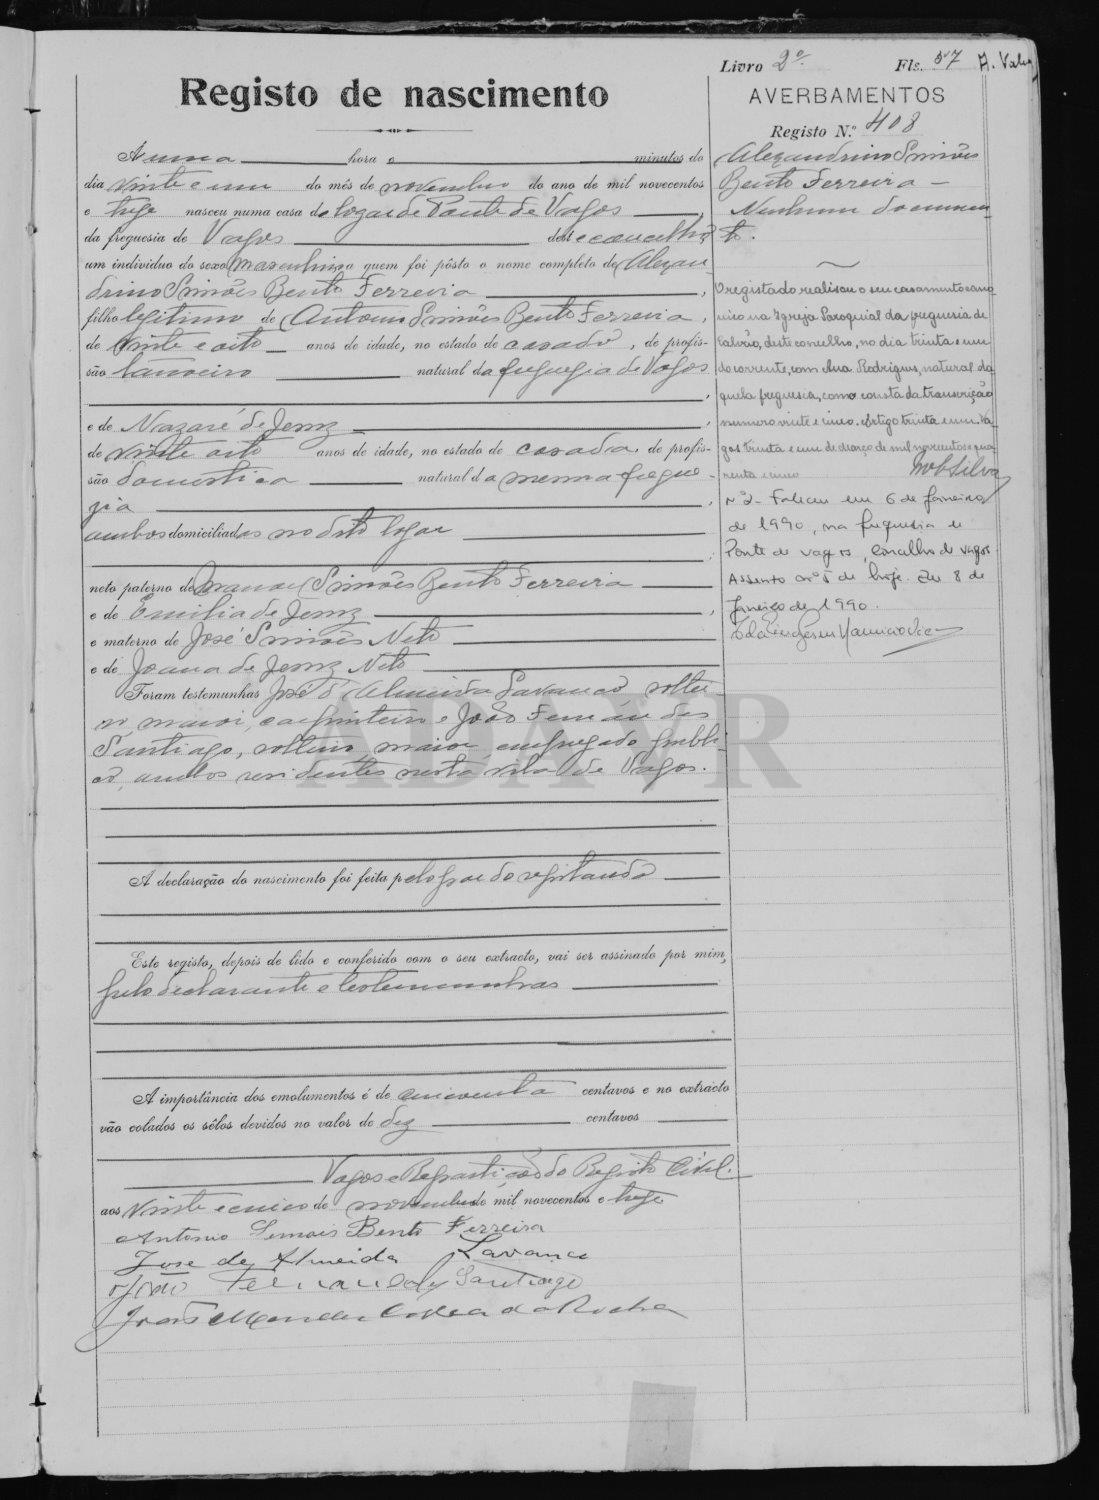 Livro 2º Fls. 57
Registo de nascimento
AVERBAMENTOS
Registo N.º 408
A uma hora e minutos do
dia vinte e um do mês de novembro do ano de mil novecentos
e treze nasceu numa casa do logar de Ponte de Vagos,
da freguesia de Vagos deste concelho
um individuo do sexo masculino a quem foi pôsto o nome completo de Alexan-
drino Simões Bento Ferreira,
filho legitimo de Antonio Simões Bento Ferreira,
de vinte e oito anos de idade, no estado de casado, de profis-
são tanoeiro natural da freguezia de Vagos
,
e de Nazaré de Jezus,
de vinte oito anos de idade, no estado de casada, de profis-
são domestica natural da mesma fregue-
zia
ambos domiciliados no dito logar
;
neto paterno de Manoel Simões Bento Ferreira
e de Emilia de Jezus,
e materno de José Simões Neto
e de Joana de Jezus Neto
Foram testemunhas José d'Almeida Lavanco, soltei-
ro, maior, carpinteiro e João Fernandes
Santiago, solteiro, maior empregado publi-
co, ambos residentes nesta vila de Vagos.
A declaração do nascimento foi feita pelo pae do registando
Este registo, depois de lido e conferido com o seu extracto, vai ser assinado por mim,
pelo declarante e testemunhas
A importância dos emolumentos é de cincoenta centavos e no extracto
vão colados os sêlos devidos no valor de dez centavos
Vagos e Repartição do Registo Civil.
aos vinte e cinco de novembro de mil novecentos e treze
Antonio Simois Bento Ferreira
Jose de Almeida Lavanco
João Fernandes Santiago
João Mendes Correa da Rocha
Alexandrino Simões
Bento Ferreira –
Nenhum documen-
to.
O registado realisou o seu casamento cano-
nico na Igreja Paroquial da freguesia de
Calvão, deste concelho, no dia trinta e um
do corrente, com Ana Rodrigues, natural da
quela freguesia, como consta da transcrição
numero vinte e cinco. Artigo trinta e um. Va-
gos trinta e um de março de mil novecentos e qua-
renta e cinco
Nº 2 - Faleceu em 6 de Janeiro
de 1990, na freguesia de
Ponte de Vagos, Concelho de Vagos.
Assento nº 5 de hoje. Em 8 de
Janeiro de 1990.
ADAVR